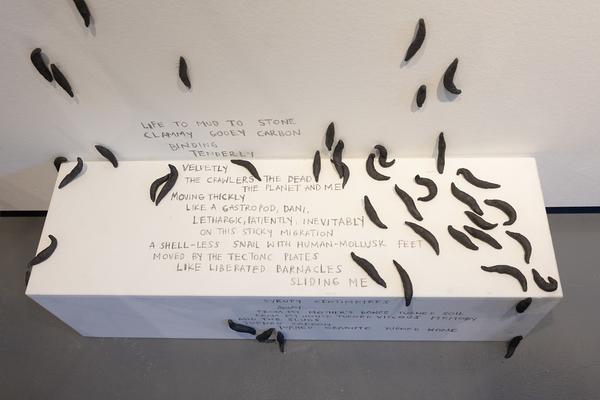 LIFE TO MUD TO STONE
CLAMMY GOOEY CARBON
BINDING
TENDERLY
VELVETLY
THE CRAWLERS THE DEAD
THE PLANET AND ME
MOVING THICKLY
LIKE A GASTROPOD, DANI,
LETHARGIC, PATIENTLY, INEVITABLY
ON THIS STICKY MIGRATION
A SHELL-LESS SNAIL WITH HUMAN-MOLLUSK FEET
MOVED BY THE TECTONIC PLATES
LIKE LIBERATED BARNACLES
SLIDING ME
SYRUPY CENTIMETRES
AWAY
FROM MY MOTHER'S BONES, TURNED SOIL
FROM MY TURNED VISCOUS MEMORY
AND THE SLUGS
TURNED CARBON
TURNED GRANITE TURNED HOME